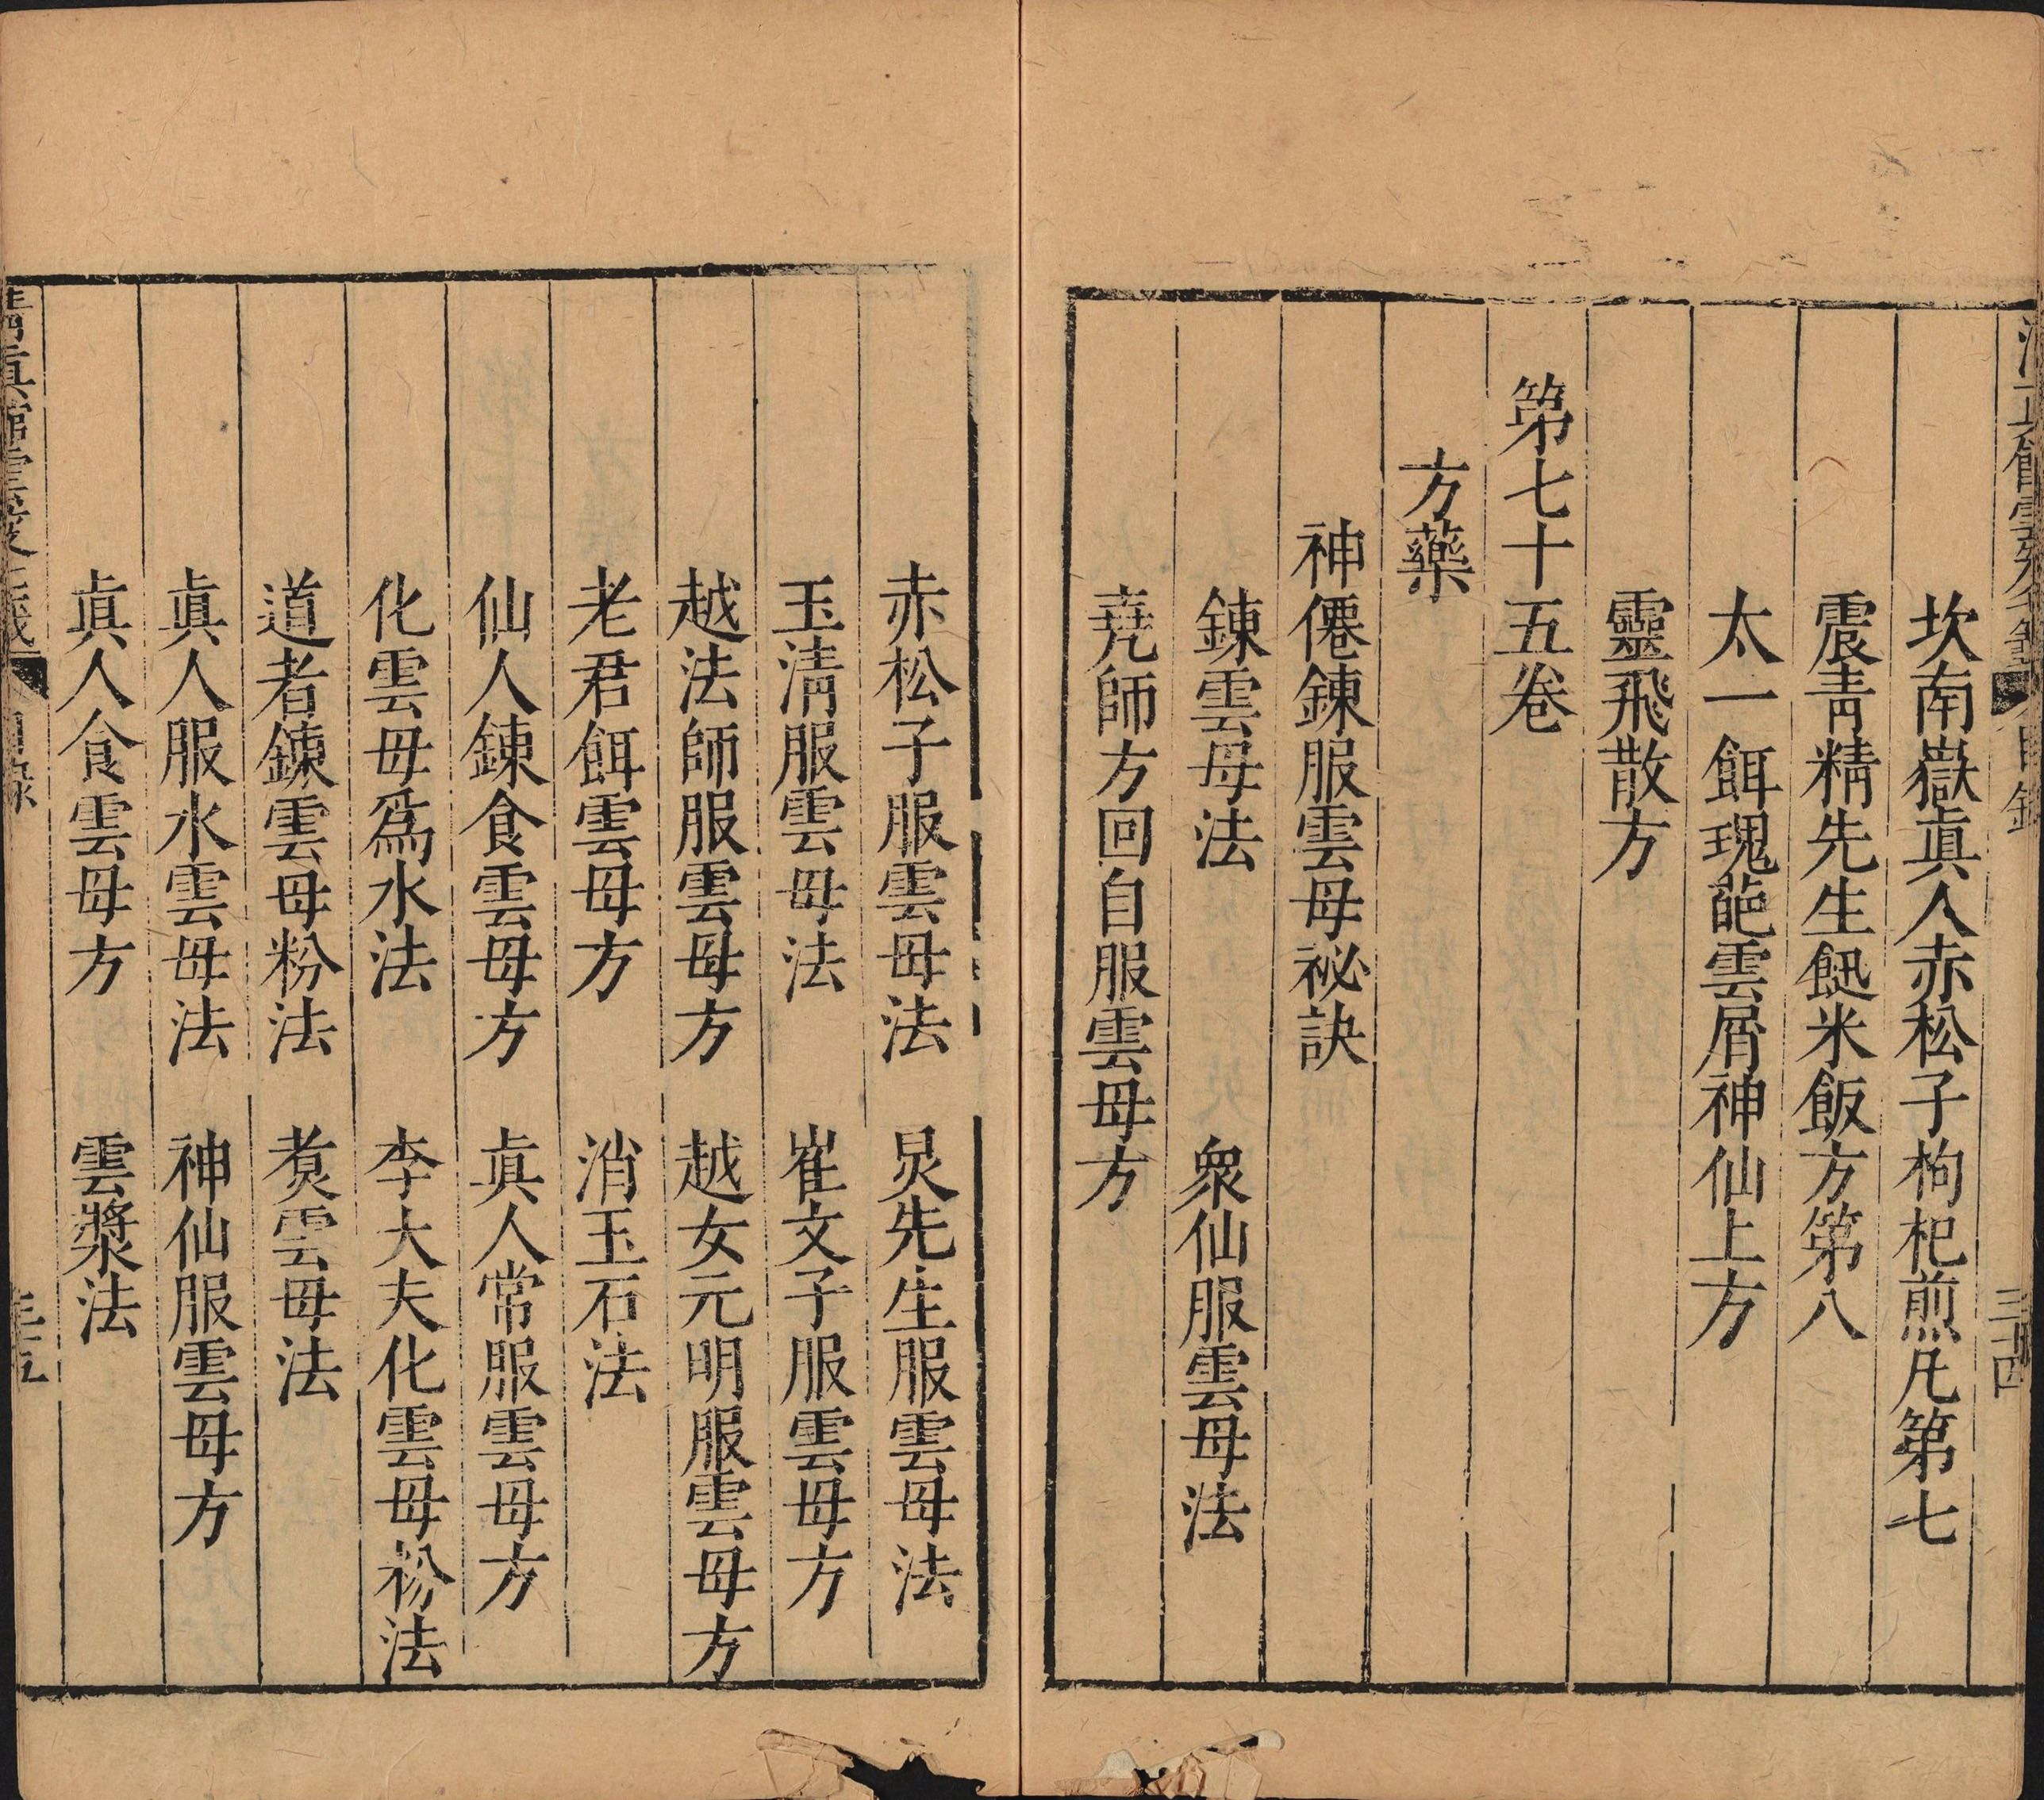 坎南嶽眞人赤松子枸杞煎凡第七
震靑精先生䭀米飯方第八
太一餌瑰葩雲屑神仙上方
靈飛散方
第七十五卷
方藥
神僊鍊服雲母祕訣
鍊雲母法　衆仙服雲母法
堯師方回自服雲母方
赤松子服雲母法　炅先生服雲母法
玉淸服雲母法　崔文子服雲母方
越法師服雲母方　越女元明服雲母方
老君餌雲母方　消玉石法
仙人鍊食雲母方　眞人常服雲母方
化雲母爲水法　李大夫化雲母粉法
道者鍊雲母粉法　煑雲母法
眞人服水雲母法　神仙服雲母方
眞人食雲母方　雲漿法